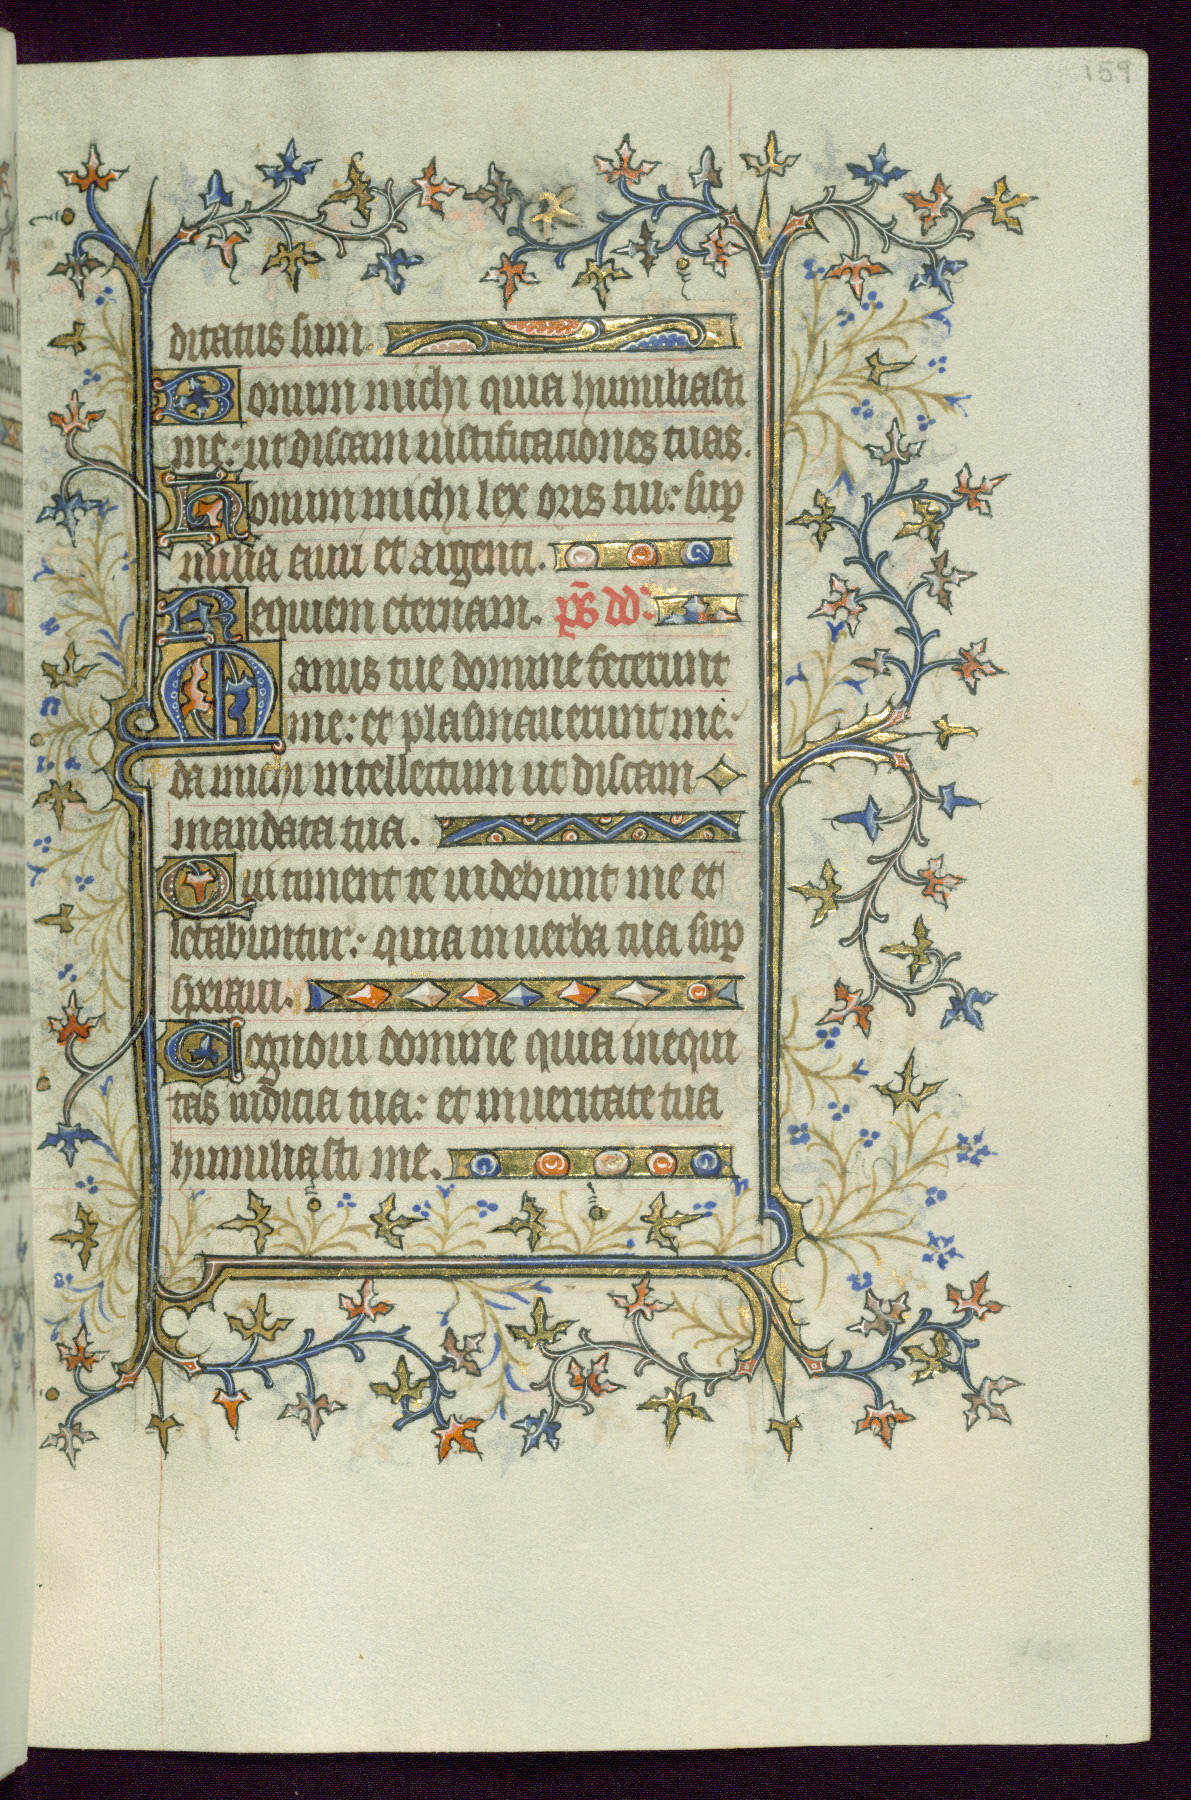 159
ditatus sum.
Bonum michi quia humiliasti
me: ut discam iustificationes tuas.
Bonum michi lex oris tui: sup
milia auri et argenti.
Requiem eternam. ps dd:
Manus tue domine fecerunt
me: et plasmauerunt me:
da michi intellectum ut discam
mandata tua.
Qui timent te uidebunt me et
letabuntur: quia in uerba tua sup
speraui.
Cognoui domine quia inequi
tas iudicia tua: et in ueritate tua
humiliasti me.